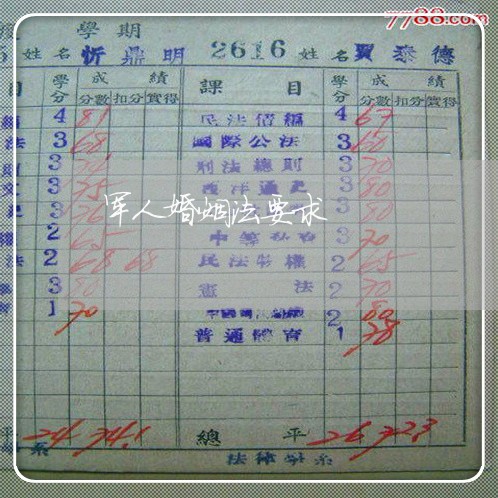 7788.com
學期
5 姓名 忻鼎明 2616 姓名 賈泰德
目 學分 成績 課目 學分 成績
分數 扣分 實得 分數 扣分 實得
4 81 民法債編 4 67
法 3 68 國際公法 3 60
3 刑法總則 3 70
3 75 西洋通史 3 80
3 76 3 80
2 65 3 70
法 2 68 68 民法物權 2 65
3 80 憲法 2 70
1 70 2 80
普通體育 1 78
軍人婚姻法要求
平 24 74.1 總平 26 72.3
系 法律學系